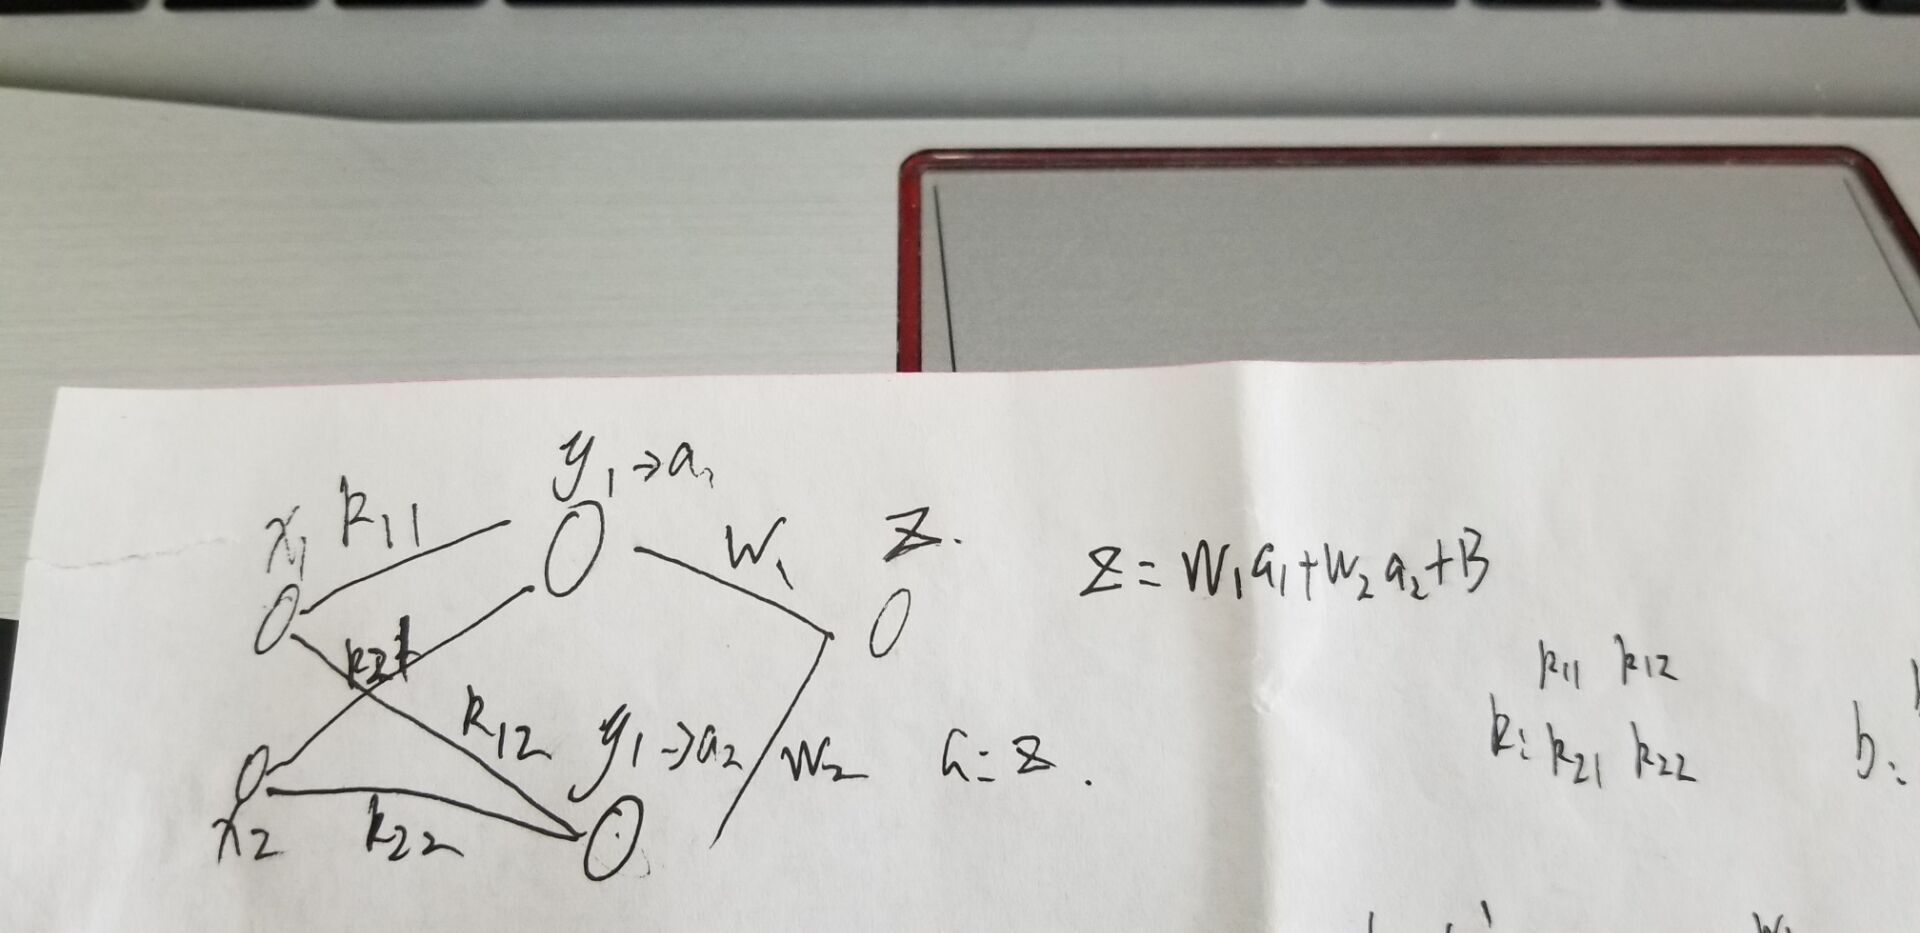 y₁→a₁
x₁ k₁₁
W₁
Z.
Z = W₁a₁+W₂a₂+B
k₂₁
k₁₂
y₁→a₂
W₂
a = z.
x₂
k₂₂
k₁₁ k₁₂
k: k₂₁ k₂₂
b: